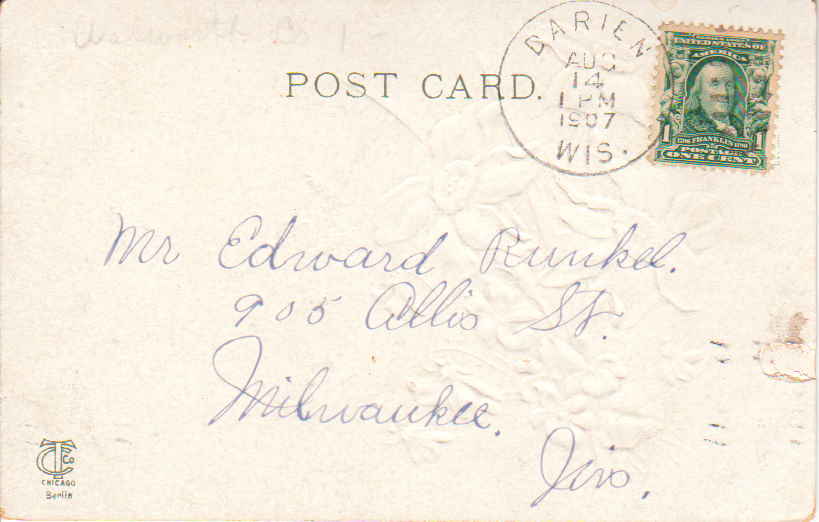 Walworth Co 1 -
DARIEN
AUG
14
1 PM
1907
WIS.
POST CARD.
UNITED STATES OF
AMERICA
1 1
1706 FRANKLIN 1790
POSTAGE
ONE CENT
Mr Edward Runkel.
905 Allis St.
Milwaukee.
Wis.
TC Co
CHICAGO
Berlin